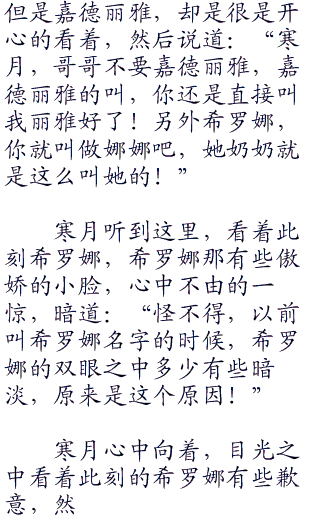 但是嘉德丽雅，却是很是开
心的看着，然后说道：“寒
月，哥哥不要嘉德丽雅，嘉
德丽雅的叫，你还是直接叫
我丽雅好了！另外希罗娜，
你就叫做娜娜吧，她奶奶就
是这么叫她的！”
寒月听到这里，看着此
刻希罗娜，希罗娜那有些傲
娇的小脸，心中不由的一
惊，暗道：“怪不得，以前
叫希罗娜名字的时候，希罗
娜的双眼之中多少有些暗
淡，原来是这个原因！”
寒月心中向着，目光之
中看着此刻的希罗娜有些歉
意，然